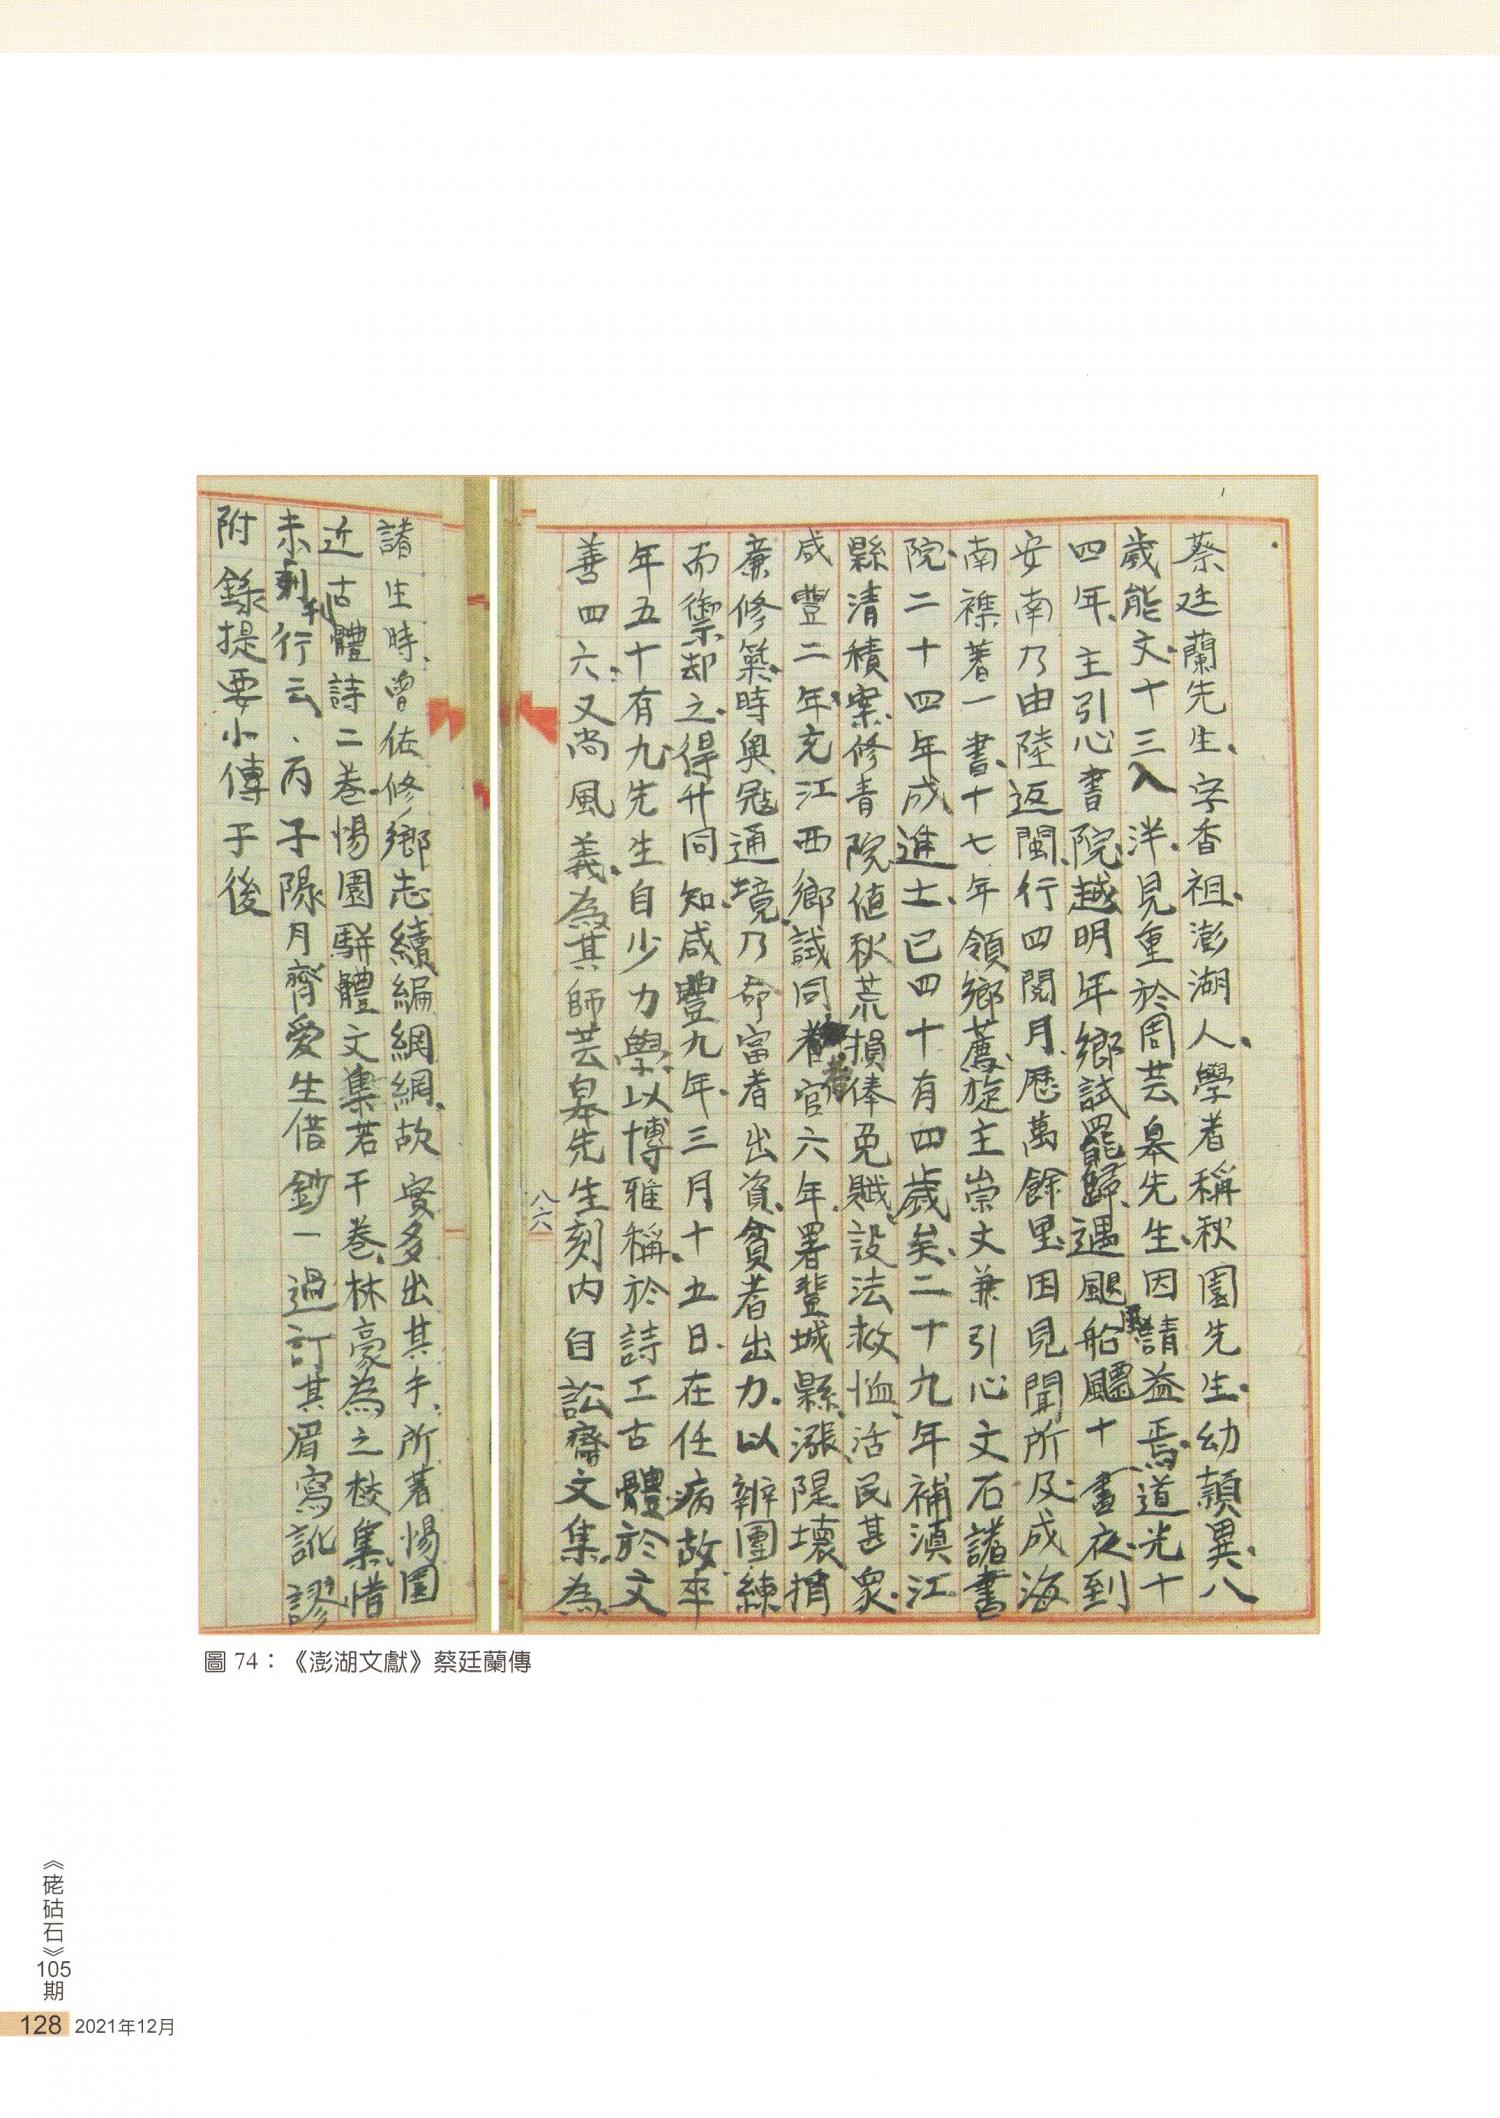 蔡廷蘭先生、字香祖、澎湖人、學者稱秋園先生、幼穎異、八
歲能文、十三入泮、見重於周芸皋先生、因請益焉、道光十
四年、主引心書院、越明年鄉試罷歸、遇颶船飄十晝夜、到
安南乃由陸返閩、行四閱月、歷萬餘里、因見聞所及、成海
南襍著一書、十七年領鄉薦、旋主崇文兼引心文石諸書
院、二十四年成進士、已四十有四歲矣、二十九年補滇江
縣清積案、修青院、值秋荒、損俸免賦設法救恤、活民甚衆、
咸豐二年、充江西鄉試同考官、六年、署豐城縣、漲隄壞捐
廉修築、時奧寇通境、乃命富者出資、貧者出力、以辦團練
而禦却之、得升同知、咸豐九年、三月十五日、在任病故、卒
年五十有九、先生自少力學、以博雅稱、於詩工古體、於文
善四六、又尚風義、為其師芸皋先生刻內自訟齋文集、為
八六
諸生時、曾佐修鄉志續編網網、故實多出其手、所著惕園
近古體詩二卷、惕園駢體文集若干卷、林豪為之校集、惜
未刊行云、丙子陽月齊愛生借鈔一過、訂其眉寫訛謬
附錄提要小傳于後
圖 74：《澎湖文獻》蔡廷蘭傳
《硓𥑮石》105期
128 2021年12月